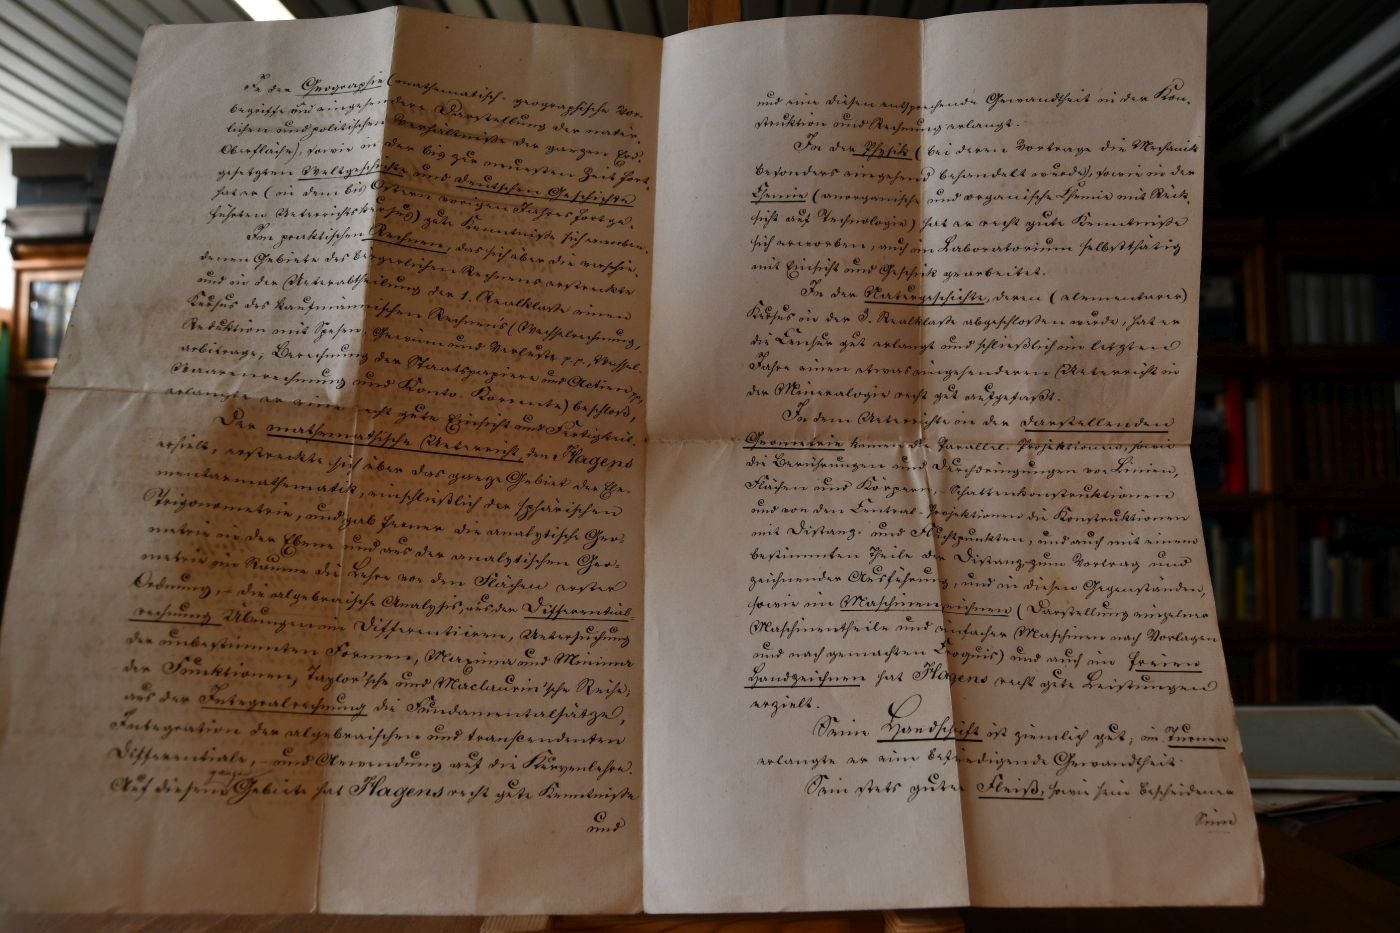 In der Geographie (mathematisch-geographische Vor-
begriffe und eingehendere Darstellung der natür-
lichen und politischen Verhältnisse der ganzen Erd-
Oberfläche), sowie in der bis zur neuesten Zeit fort-
gesetzten Weltgeschichte und deutschen Geschichte
hat er (in dem bis Ostern vorigen Jahres fortge-
führten Unterrichtskursus) gute Kenntniße sich erworben.
Im praktischen Rechnen, das sich über die verschie-
denen Gebiete des bürgerlichen Rechnens erstreckte
und in der Unterabtheilung der 1. Realklaße einen
Kursus des kaufmännischen Rechnens (Wechselrechnung,
Reduktion mit Spesen, Gewinn und Verluste p.c., Wechsel-
arbitrage, Berechnung der Staatspapiere und Actien pp,
Waarenrechnung und Konto-Korrente) beschloß,
erlangte er eine recht gute Einsicht und Fertigkeit.
Der mathematische Unterricht, den Hagens
erhielt, erstreckte sich über das ganze Gebiet der Ele-
mentarmathematik, einschließlich der sphärischen
Trigonometrie, und gab ferner die analytische Geo-
metrie in der Ebene und aus der analytischen Geo-
metrie im Raume die Lehre von den Flächen erster
Ordnung, – die algebraische Analysis, aus der Differential-
rechnung Übungen im Differentiiren, Untersuchung
der unbestimmten Formen, Maxima und Minima
der Funktionen, Taylor'sche und Maclaurin'sche Reihe;
aus der Integralrechnung die Fundamentalsätze,
Integration der algebraischen und transcendenten
Differentiale, – und Anwendung auf die Kurvenlehre.
Auf diesem ganzen Gebiete hat Hagens recht gute Kenntniße
und
und eine diesen entsprechende Gewandtheit in der Kon-
struktion und Rechnung erlangt.
In der Physik (bei deren Vortrage die Mechanik
besonders eingehend behandelt wurde), sowie in der
Chemie (anorganische und organische Chemie mit Rück-
sicht auf Technologie) hat er recht gute Kenntniße
sich erworben, auch im Laboratorium selbstthätig
mit Einsicht und Geschick gearbeitet.
In der Naturgeschichte, deren (elementarer)
Kursus in der 3. Realklaße abgeschloßen wurde, hat er
die Censur gut erlangt und schließlich im letzten
Jahre einen etwas eingehenderen Unterricht in
der Mineralogie recht gut aufgefaßt.
In dem Unterrichte in der darstellenden
Geometrie kamen die Parallel-Projektionen, sowie
die Berührungen und Durchdringungen von Linien,
Flächen und Körpern, – Schattenkonstruktionen
und von den Central-Projektionen die Konstruktionen
mit Distanz- und Fluchtpunkten, und auch mit einem
bestimmten Theile der Distanz zum Vortrag und
zeichnender Ausführung, und in diesen Gegenständen,
sowie im Maschinenzeichnen (Darstellung einzelner
Maschinentheile und einfacher Maschinen nach Vorlagen
und nach gemachten Croquis) und auch im freien
Handzeichnen hat Hagens recht gute Leistungen
erzielt.
Seine Handschrift ist ziemlich gut; im Turnen
erlangte er eine befriedigende Gewandtheit.
Sein stets guter Fleiß, sowie sein bescheidener
Sinn